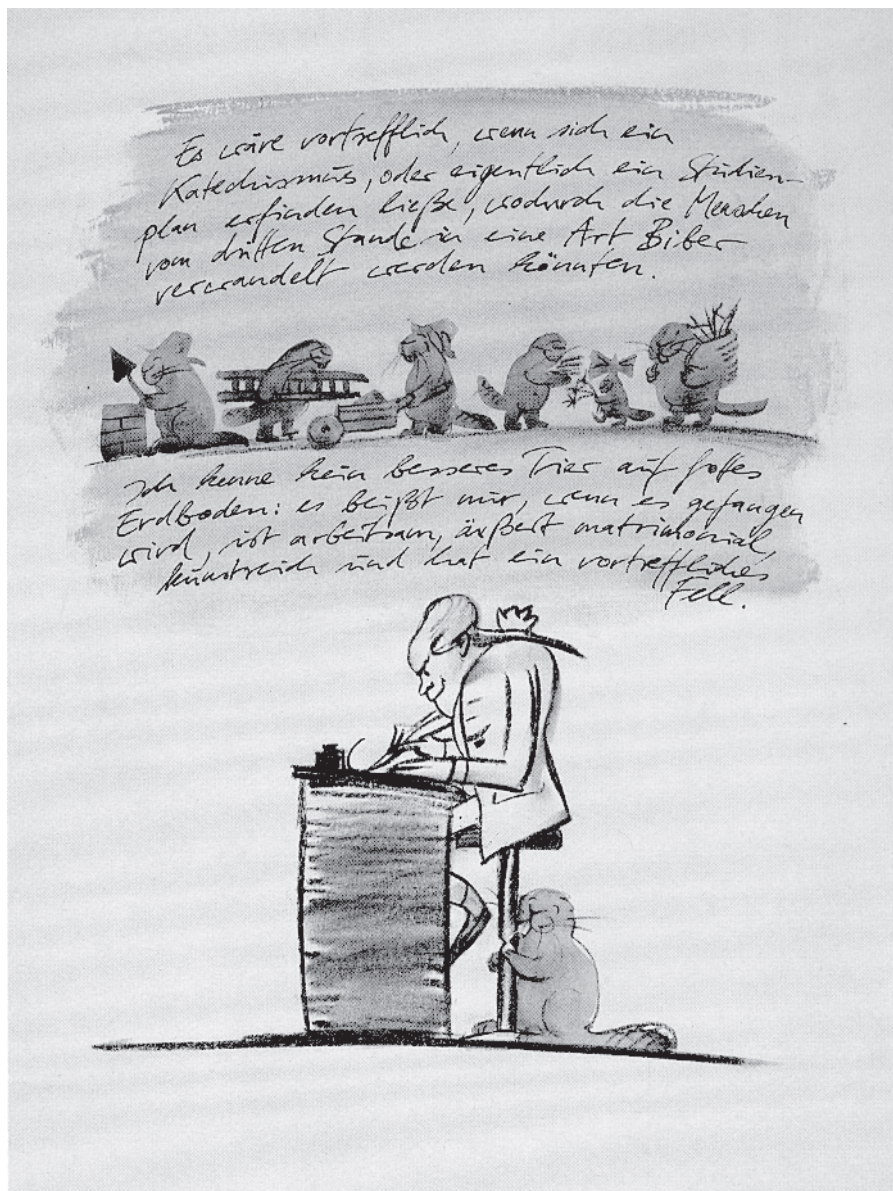 Es wäre vortrefflich, wenn sich ein
Katechismus, oder eigentlich ein Studien-
plan erfinden ließe, wodurch die Menschen
vom dritten Stande in eine Art Biber
verwandelt werden könnten.
Ich kenne kein besseres Tier auf Gottes
Erdboden: es beißt nur, wenn es gefangen
wird, ist arbeitsam, äußerst matrimonial,
kunstreich und hat ein vortreffliches
Fell.